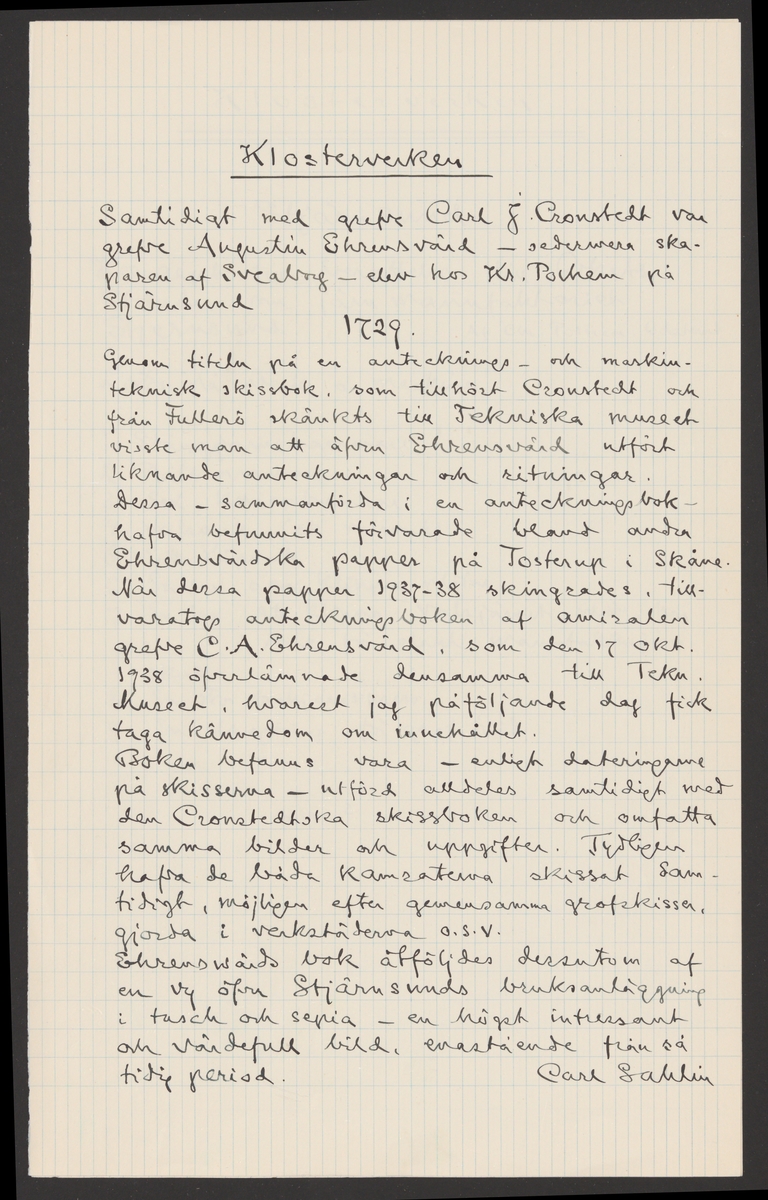 Klosterverken
Samtidigt med grefve Carl J. Cronstedt var
grefve Augustin Ehrensvärd – sedermera ska-
paren af Sveaborg – elev hos Kr. Polhem på
Stjärnsund
1729.
Genom titeln på en antecknings- och maskin-
teknisk skissbok, som tillhört Cronstedt och
från Fullerö skänkts till Tekniska museet
visste man att äfven Ehrensvärd utfört
liknande anteckningar och ritningar.
Dessa – sammanförda i en anteckningsbok –
hafva befunnits förvarade bland andra
Ehrensvärdska papper på Tosterup i Skåne.
När dessa papper 1937-38 skingrades, till-
varatogs anteckningsboken af amiralen
grefve C. A. Ehrensvärd, som den 17 Okt.
1938 öfverlämnade densamma till Tekn.
Museet, hvarest jag påföljande dag fick
taga kännedom om innehållet.
Boken befanns vara – enligt dateringarne
på skisserna – utförd alldeles samtidigt med
den Cronstedtska skissboken och omfatta
samma bilder och uppgifter. Tydligen
hafva de båda kamraterna skissat sam-
tidigt, möjligen efter gemensamma grofskisser,
gjorda i verkstäderna o.s.v.
Ehrenswärds bok åtföljdes dessutom af
en vy öfver Stjärnsunds bruksanläggning
i tusch och sepia – en högst intressant
och värdefull bild, enastående från så
tidig period. Carl Sahlin